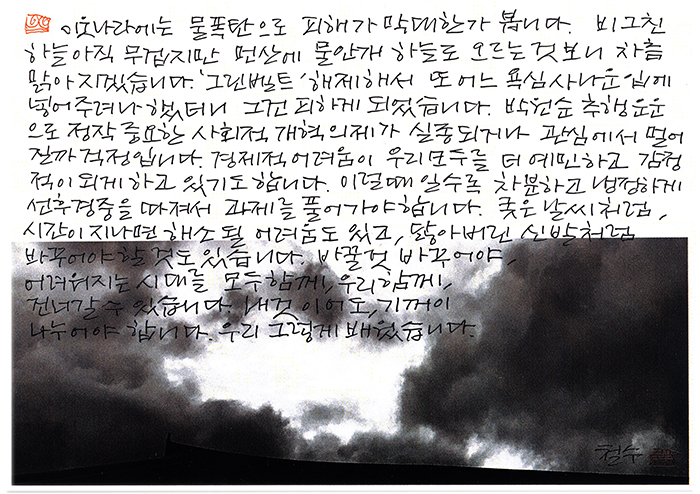 이웃나라에는 물폭탄으로 피해가 막대한가 봅니다. 비그친
하늘 아직 무겁지만 먼산에 물안개 하늘로 오르는 것 보니 차츰
맑아지겠습니다. '그린벨트' 해제해서 또 어느 욕심 사나운 입에
넣어주려나 했더니 그건 피하게 되었습니다. 박원순 추행 운운
으로 정작 중요한 사회적 개혁 의제가 실종되거나 관심에서 멀어
질까 걱정입니다. 경제적 어려움이 우리 모두를 더 예민하고 감정
적이 되게 하고 있기도 합니다. 이럴 때일수록 차분하고 냉정하게
선후경중을 따져서 과제를 풀어가야 합니다. 궂은 날씨처럼,
시간이 지나면 해소될 어려움도 있고, 닳아버린 신발처럼
바꾸어야 할 것도 있습니다. 바꿀 것 바꾸어야,
어려워지는 시대를 모두 함께, 우리 함께,
건너갈 수 있습니다. 내것이어도, 기꺼이
나누어야 합니다. 우리 그렇게 배웠습니다.
철수